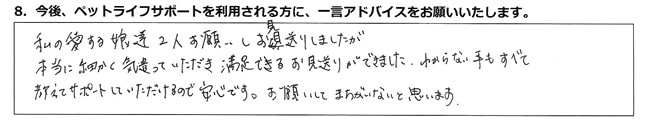 8. 今後、ペットライフサポートを利用される方に、一言アドバイスをお願いいたします。
私の愛する娘達2人お願いしお見送りしましたが
本当に細かく気遣っていただき満足できるお見送りができました. わからない事もすべて
教えてサポートしていただけるので安心です。お願いしてまちがいないと思います.